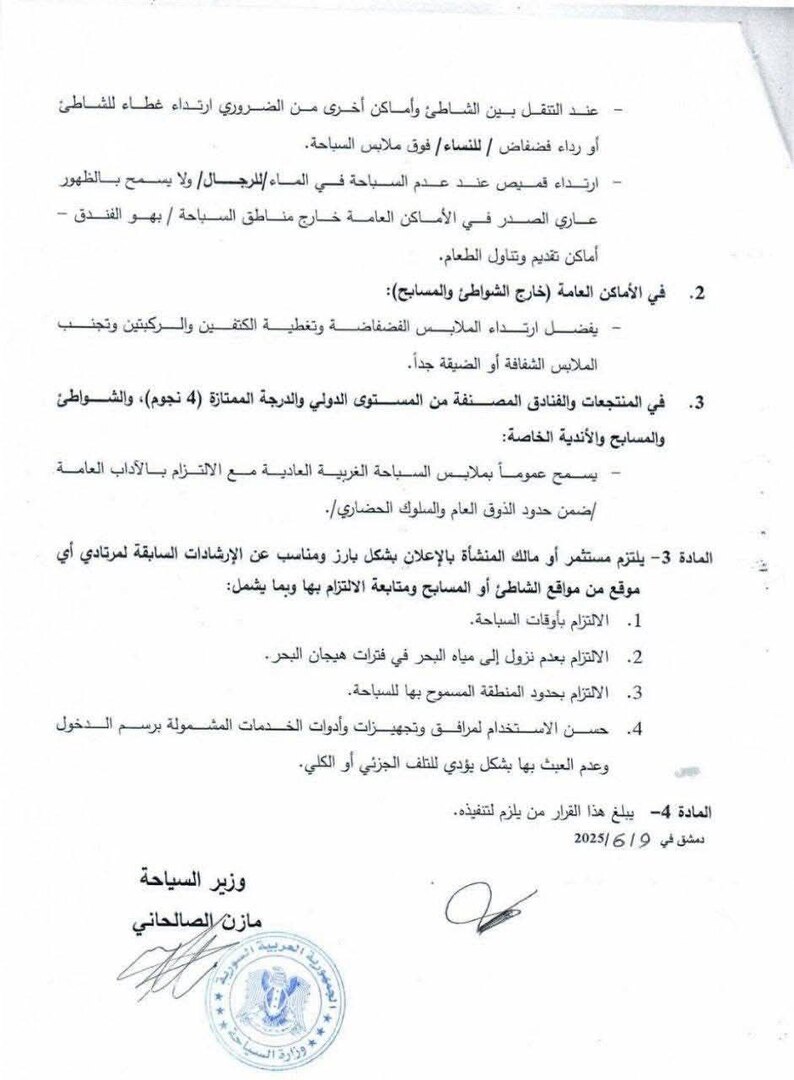 – عند التنقل بين الشاطئ وأماكن أخرى من الضروري ارتداء غطاء للشاطئ
أو رداء فضفاض / للنساء/ فوق ملابس السباحة.
– ارتداء قميص عند عدم السباحة في الماء/للرجال/ ولا يسمح بالظهور
عاري الصدر في الأماكن العامة خارج مناطق السباحة / بهو الفندق –
أماكن تقديم وتناول الطعام.
2. في الأماكن العامة (خارج الشواطئ والمسابح):
– يفضل ارتداء الملابس الفضفاضة وتغطية الكتفين والركبتين وتجنب
الملابس الشفافة أو الضيقة جداً.
3. في المنتجعات والفنادق المصنفة من المستوى الدولي والدرجة الممتازة (4 نجوم)، والشواطئ
والمسابح والأندية الخاصة:
– يسمح عموماً بملابس السباحة الغربية العادية مع الالتزام بالآداب العامة
/ضمن حدود الذوق العام والسلوك الحضاري/.
المادة 3– يلتزم مستثمر أو مالك المنشأة بالإعلان بشكل بارز ومناسب عن الإرشادات السابقة لمرتادي أي
موقع من مواقع الشاطئ أو المسابح ومتابعة الالتزام بها وبما يشمل:
1. الالتزام بأوقات السباحة.
2. الالتزام بعدم نزول إلى مياه البحر في فترات هيجان البحر.
3. الالتزام بحدود المنطقة المسموح بها للسباحة.
4. حسن الاستخدام لمرافق وتجهيزات وأدوات الخدمات المشمولة برسم الدخول
وعدم العبث بها بشكل يؤدي للتلف الجزئي أو الكلي.
المادة 4– يبلغ هذا القرار من يلزم لتنفيذه.
دمشق في 9/6/2025
وزير السياحة
مازن الصالحاني
الجمهورية العربية السورية
وزارة السياحة